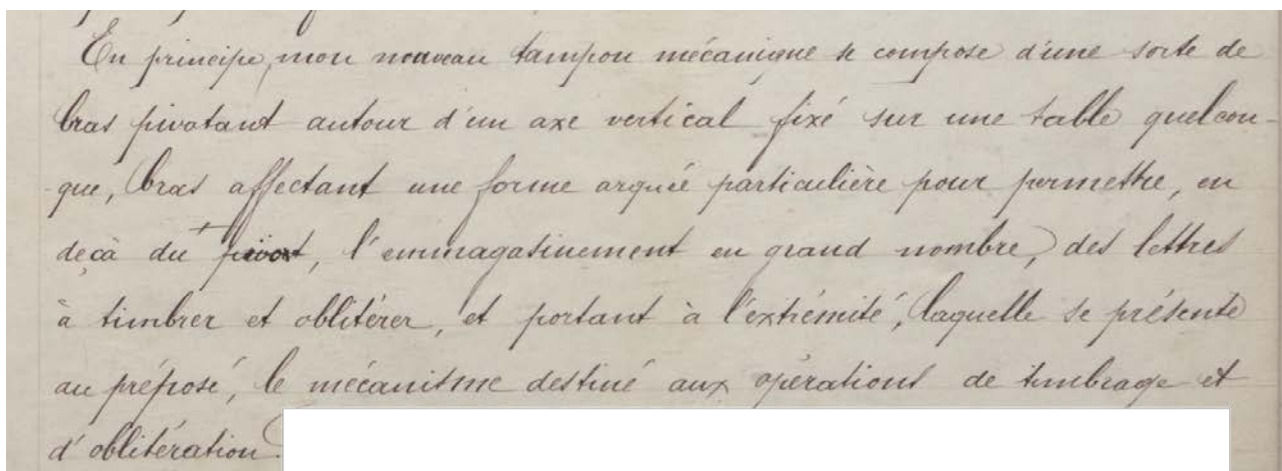 En principe, mon nouveau tampon mécanique se compose d'une sorte de
bras pivotant autour d'un axe vertical fixé sur une table quelcon-
que, bras affectant une forme arquée particulière pour permettre, en
deçà du pivot, l'emmagasinement en grand nombre, des lettres
à timbrer et oblitérer, et portant à l'extrémité, laquelle se présente
au préposé, le mécanisme destiné aux opérations de timbrage et
d'oblitération.